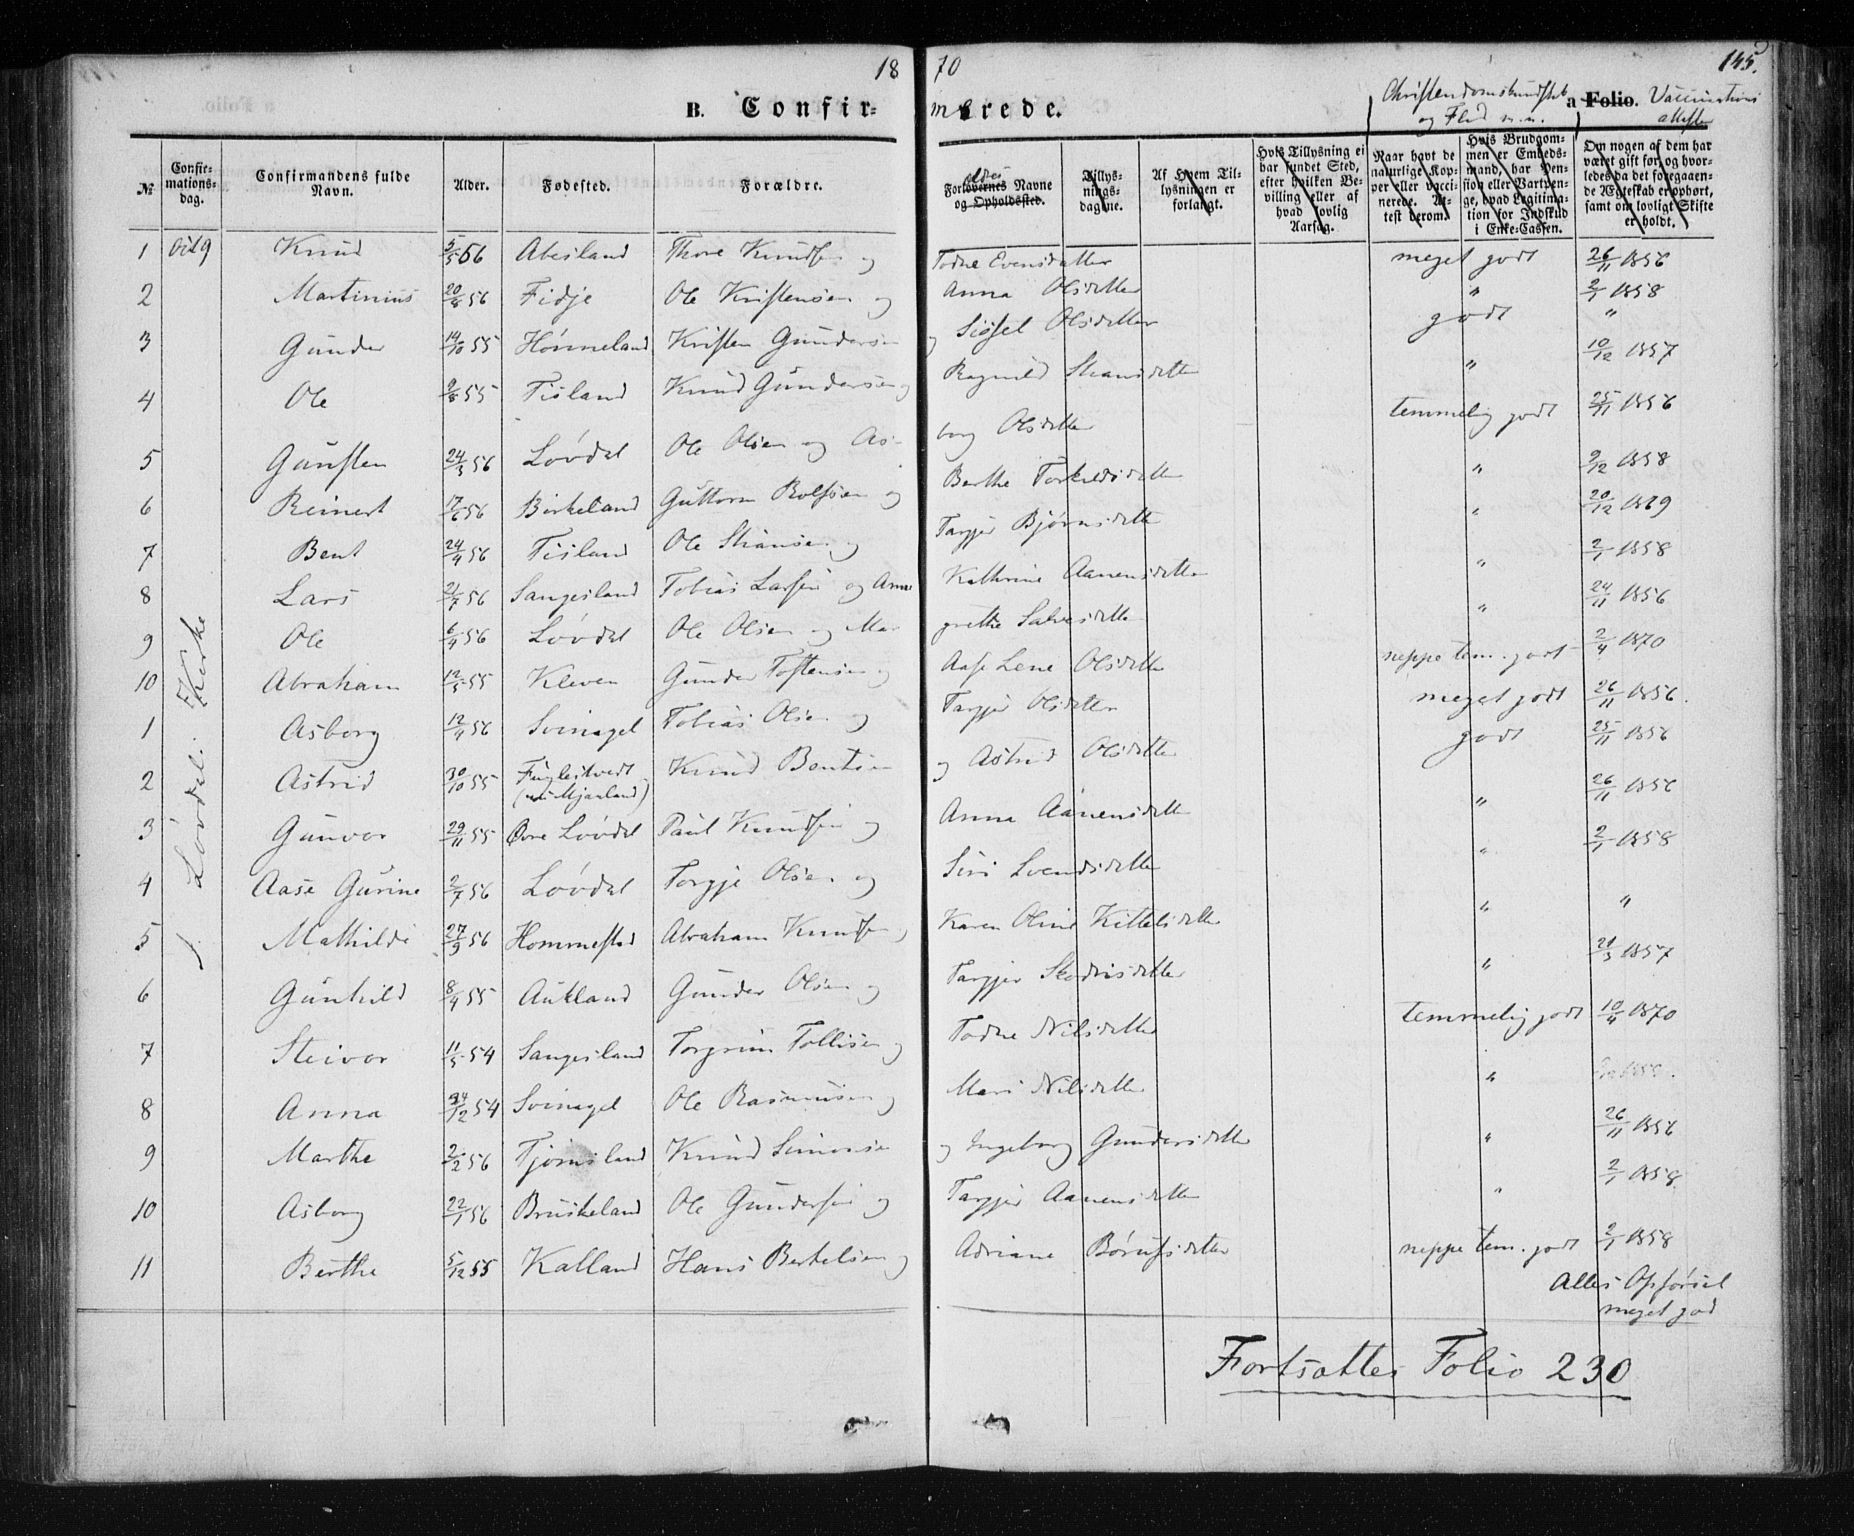 18 70 145.
B. Confir- merede.
Christendomskundskab og Flid m.m. a Folio. Vaccinations attester
№ Confir-mations-dag. Confirmandens fulde Navn. Alder. Fødested. Forældre. Forlovernes Navne og Opholdssted. Tillys-nings-dagene. Af Hvem Til-lysningen er forlangt. Hvis Tillysning ei har fundet Sted, efter hvilken Be-villing eller af hvad lovlig Aarsag. Naar havt de naturlige Kop-per eller vacci-nerede. At-test derom. Hvis Brudgom-men er Embeds-mand, har Pen-sion eller Vartpen-ge, hvad Legitima-tion for Indskud i Enke-Cassen. Om nogen af dem har været gift før, og hvor-ledes da det foregaaen-de Ægteskab er ophørt, samt om lovligt Skifte er holdt.
1 Knud 5/5 56 Abesland Thore Knudsen og Todne Evensdatter meget godt 26/11 1856
2 Martinius 20/8 56 Fidje Ole Kristensen og Anna Olsdatter " 2/1 1858
3 Gunder 14/10 55 Hønneland Kristen Gundersen og Siøfel Olsdatter godt "
4 Ole 2/8 55 Tisland Knud Gundersen og Ragnild Stiansdatter " 10/12 1857
5 Gunsten 24/3 56 Løvdal Ole Olsen og As- borg Olsdatter temmelig godt 25/11 1856
6 Reinert 17/6 56 Birkeland Guttorm Rolfsen og Berthe Torkildsdatter " 9/12 1858
7 Bent 24/4 56 Tisland Ole Stiansen og Targjer Bjørnsdatter " 20/12 1869
8 Lars 21/7 56 Sangesland Tobias Larsen og Anne Kathrine Aanensdatter " 2/1 1858
9 Ole 6/4 56 Løvdal Ole Olsen og Mar grethe Salvesdatter " 24/11 1856
10 Abraham 12/5 55 Kleven Gunder Tostensen og Aase Lene Olsdatter neppe tem. godt 2/4 1870
Løvdals Kirke
1 Asborg 12/4 56 Svinagel Tobias Olsen og Targjer Olsdatter meget godt 26/11 1856.
2 Astrid 30/10 55 Fuglestvedt (nu Mjaaland) Knud Bentsen og Astrid Olsdatter godt 25/11 1856
3 Gunvor 29/11 55 Øvre Løvdal Paul Knudsen og Anna Aanensdatter " 26/11 1856
4 Aase Gurine 2/7 56 Løvdal Torgje Olsen og Siri Svendsdatter " 2/1 1858
5 Mathilde 27/9 56 Hommestad Abraham Knudsen og Karen Oline Kittelsdatter " "
6 Gunhild 8/4 55 Aukland Gunder Olsen og Targjer Stedrisdatter " 21/3 1857
7 Steivor 11/3 54 Sangesland Torgrim Tollisen og Todne Nilsdatter temmelig godt 10/4 1870
8 Anna 24/12 54 Svinagel Ole Rasmusen og Mari Nilsdatter "
9 Marthe 2/2 56 Tjømsland Knud Simonsen og Ingeborg Gundersdatter " 26/11 1856
10 Asborg 22/1 56 Bruskeland Ole Gundersen og Targjer Aanensdatter " 2/1 1858
11 Berthe 5/12 55 Kalland Hans Bertelsen og Adriane Børufsdatter neppe tem. godt 2/1 1858
Alles Opførsel
meget god
Fortsattes Folio 230